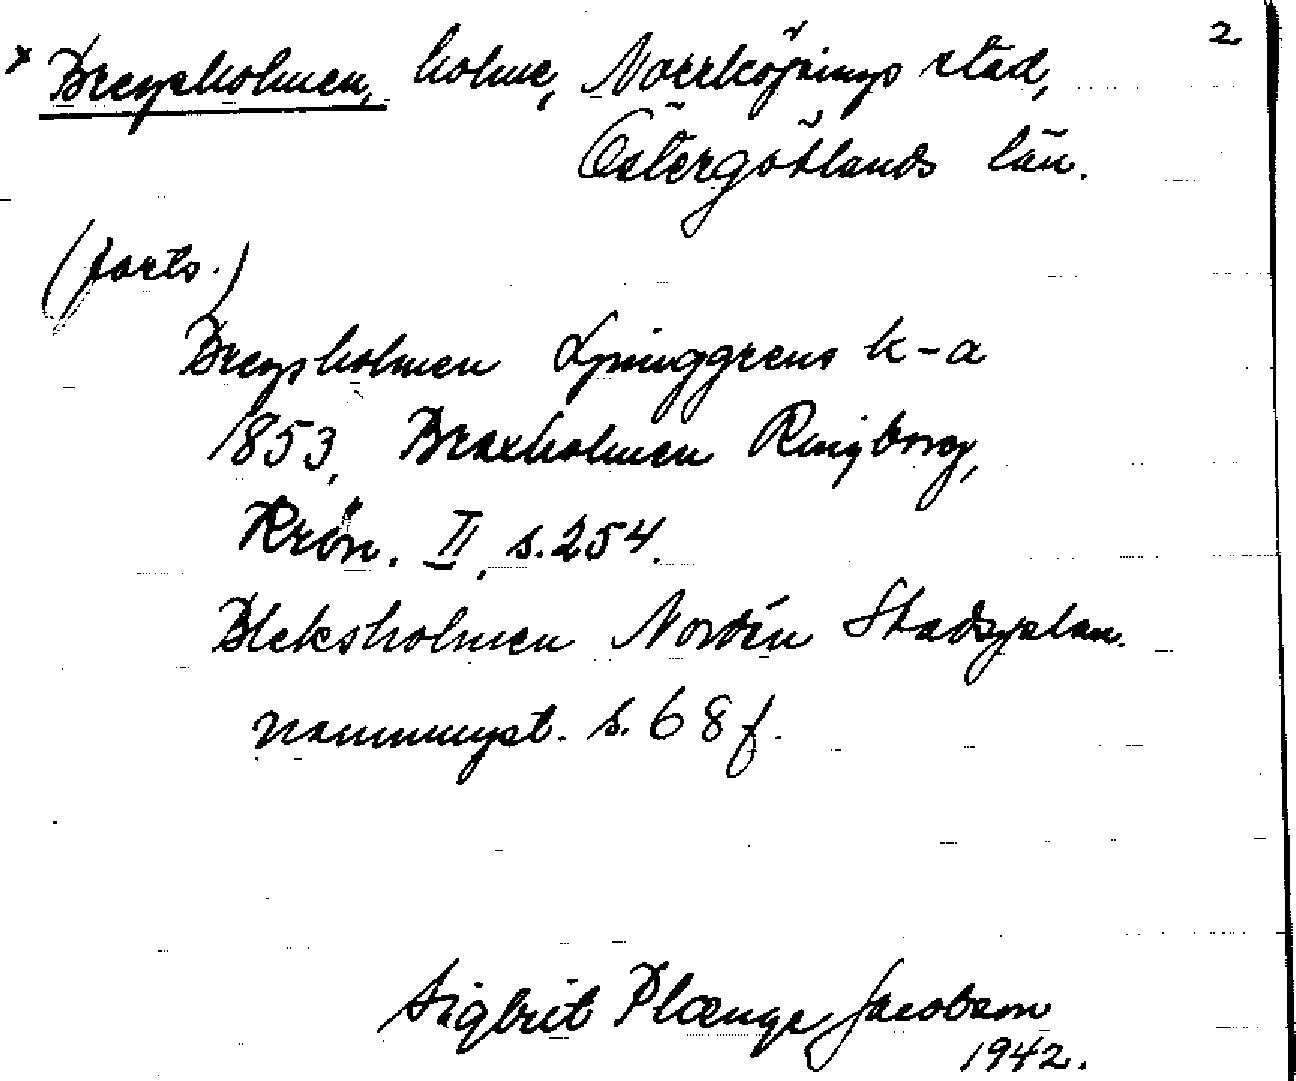 2
x Breysholmen, holme, Norrköpings stad,
Östergötlands län.
(forts.)
Breysholmen Ljunggrens k-a
1853, Braxholmen Ringborg,
Krön. II, s. 254.
Bleksholmen Nordén Stadsplan.
namnmyst. s. 68 f.
Sigbrit Plænge Jacobson
1942.